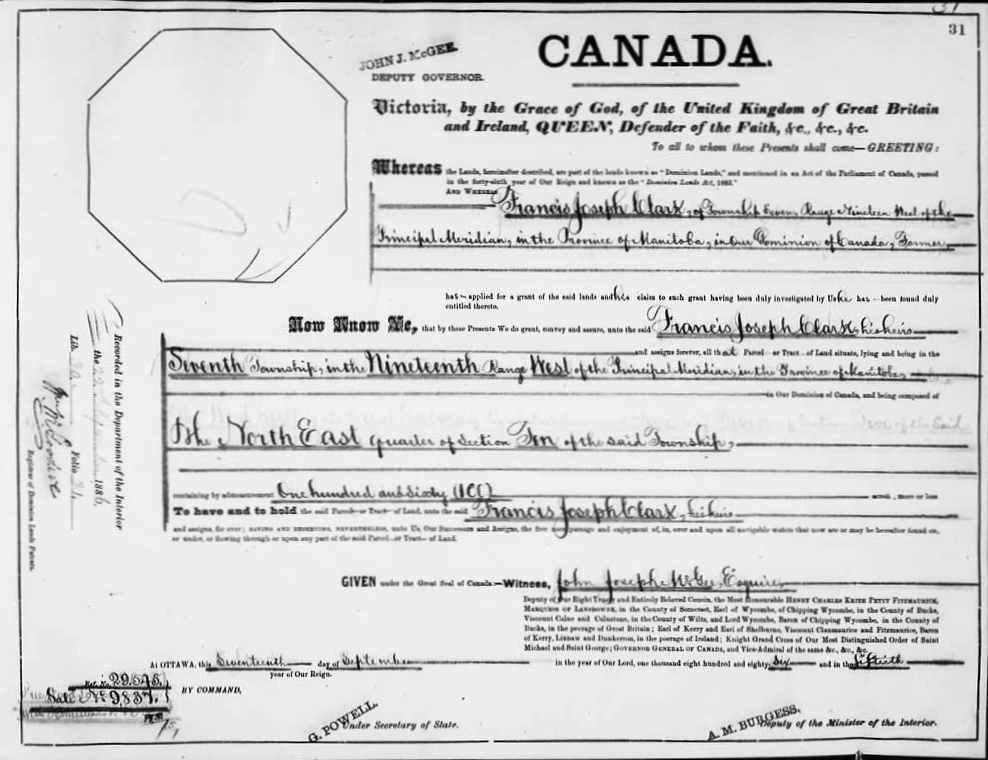 31
JOHN J. McGEE.
DEPUTY GOVERNOR.
CANADA.
Victoria, by the Grace of God, of the United Kingdom of Great Britain
and Ireland, QUEEN, Defender of the Faith, &c., &c., &c.
To all to whom these Presents shall come—GREETING:
Whereas the Lands, hereinafter described, are part of the lands known as "Dominion Lands," and mentioned in an Act of the Parliament of Canada, passed
in the forty-sixth year of Our Reign and known as the "Dominion Lands Act, 1883."
AND WHEREAS
Francis Joseph Clark, of Township Seven, Range Nineteen West of the
Principal Meridian, in the Province of Manitoba, in our Dominion of Canada, Farmer,
has applied for a grant of the said lands and his claim to such grant having been duly investigated by Us he has been found duly
entitled thereto.
Now Know Ye, that by these Presents We do grant, convey and assure, unto the said Francis Joseph Clark, his heirs
and assigns forever, all that Parcel or Tract of Land situate, lying and being in the
Seventh Township, in the Nineteenth Range West of the Principal Meridian, in the Province of Manitoba,
in Our Dominion of Canada, and being composed of
The North East quarter of Section Ten of the said Township,
containing by admeasurement One hundred and Sixty (160) acres, more or less
To have and to hold the said Parcel or Tract of Land, unto the said Francis Joseph Clark, his heirs
and assigns, for ever; SAVING AND RESERVING, NEVERTHELESS, unto Us, Our Successors and Assigns, the free passage and enjoyment of, in, over and upon all navigable waters that now are or may be hereafter found on,
or under, or flowing through or upon any part of the said Parcel or Tract of Land.
GIVEN under the Great Seal of Canada:—Witness, John Joseph McGee, Esquire,
Deputy of Our Right Trusty and Entirely Beloved Cousin, the Most Honourable HENRY CHARLES KEITH PETTY FITZMAURICE,
MARQUESS OF LANSDOWNE, in the County of Somerset, Earl of Wycombe, of Chipping Wycombe, in the County of Bucks,
Viscount Calne and Calnstone, in the County of Wilts, and Lord Wycombe, Baron of Chipping Wycombe, in the County of
Bucks, in the peerage of Great Britain; Earl of Kerry and Earl of Shelburne, Viscount Clanmaurice and Fitzmaurice, Baron
of Kerry, Lixnaw and Dunkerron, in the peerage of Ireland; Knight Grand Cross of Our Most Distinguished Order of Saint
Michael and Saint George; GOVERNOR GENERAL OF CANADA, and Vice-Admiral of the same &c., &c., &c.
At OTTAWA, this Seventeenth day of September in the year of Our Lord, one thousand eight hundred and eighty six and in the fiftieth
year of Our Reign.
BY COMMAND,
G. POWELL.
Under Secretary of State.
A. M. BURGESS.
Deputy of the Minister of the Interior.
Ref. No. 29,545
Sale No. 9837.
Recorded in the Department of the Interior
the 22nd September 1886,
Lib. Folio 31
Registrar of Dominion Lands Patents.